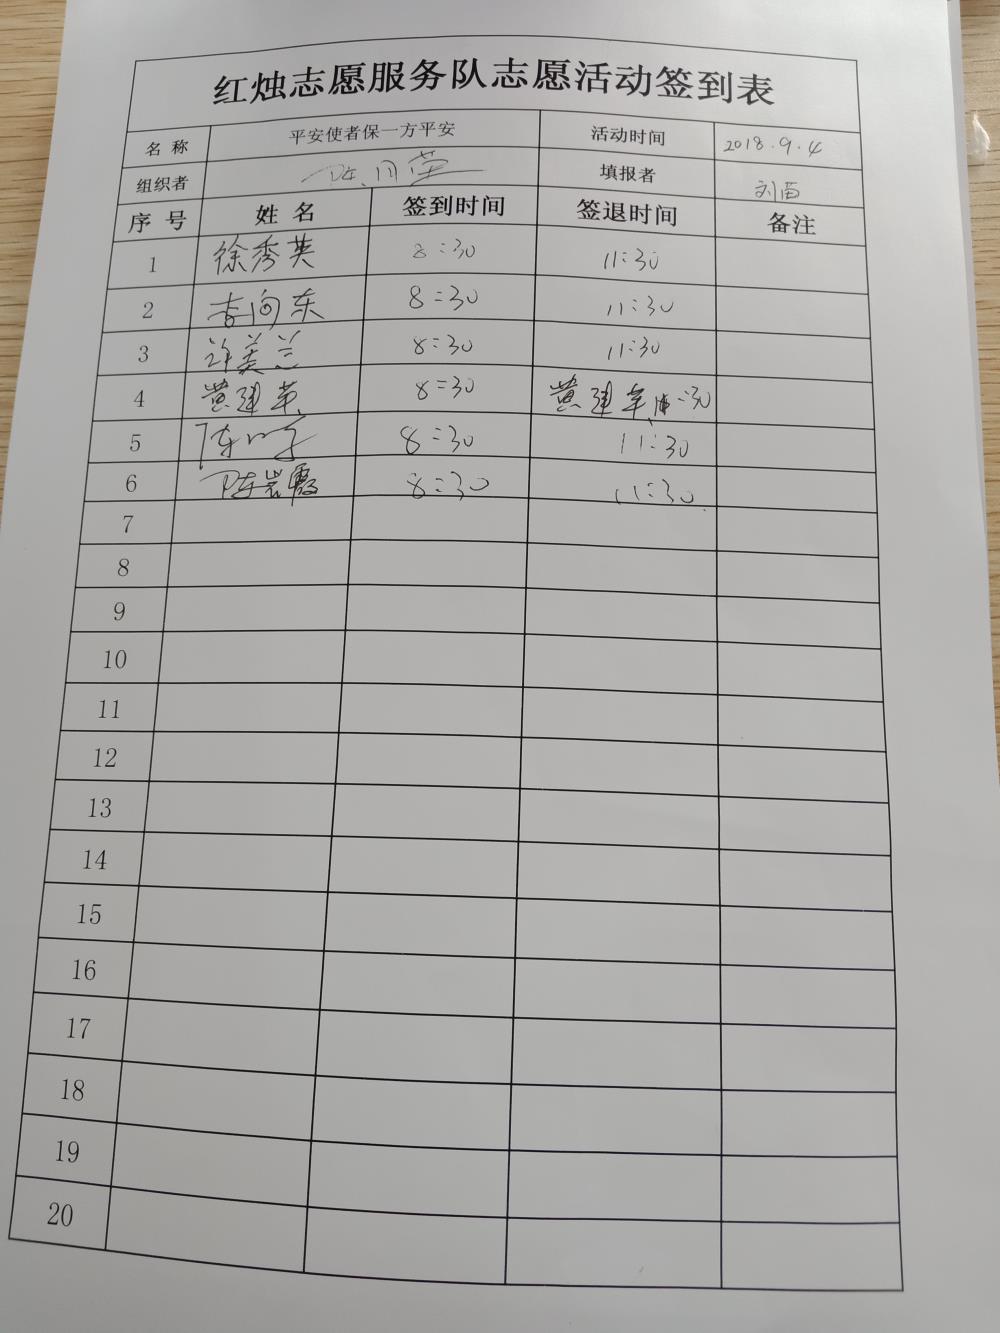 红烛志愿服务队志愿活动签到表
名 称 平安使者保一方平安 活动时间 2018.9.4
组织者 陈月莹 填报者 刘苗
序 号 姓 名 签到时间 签退时间 备注
1 徐秀英 8:30 11:30
2 李向东 8:30 11:30
3 许美兰 8:30 11:30
4 黄建 8:30 黄建 :30
5 陈 8:30 11:30
6 陈岩霞 8:30 11:30
7
8
9
10
11
12
13
14
15
16
17
18
19
20